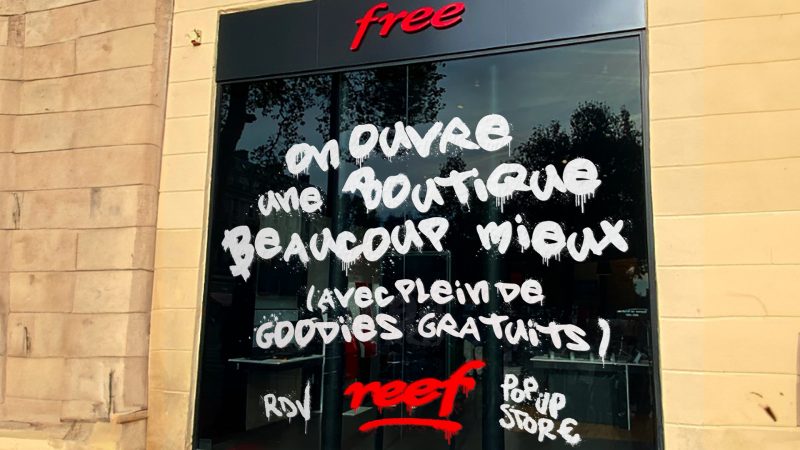 free
on ouvre
une BOUTiQUE
BeAUCOUP mieux
(AVEC PLEiN DE
GOODiES GRATUiTS)
RDV reef POP UP
STORE